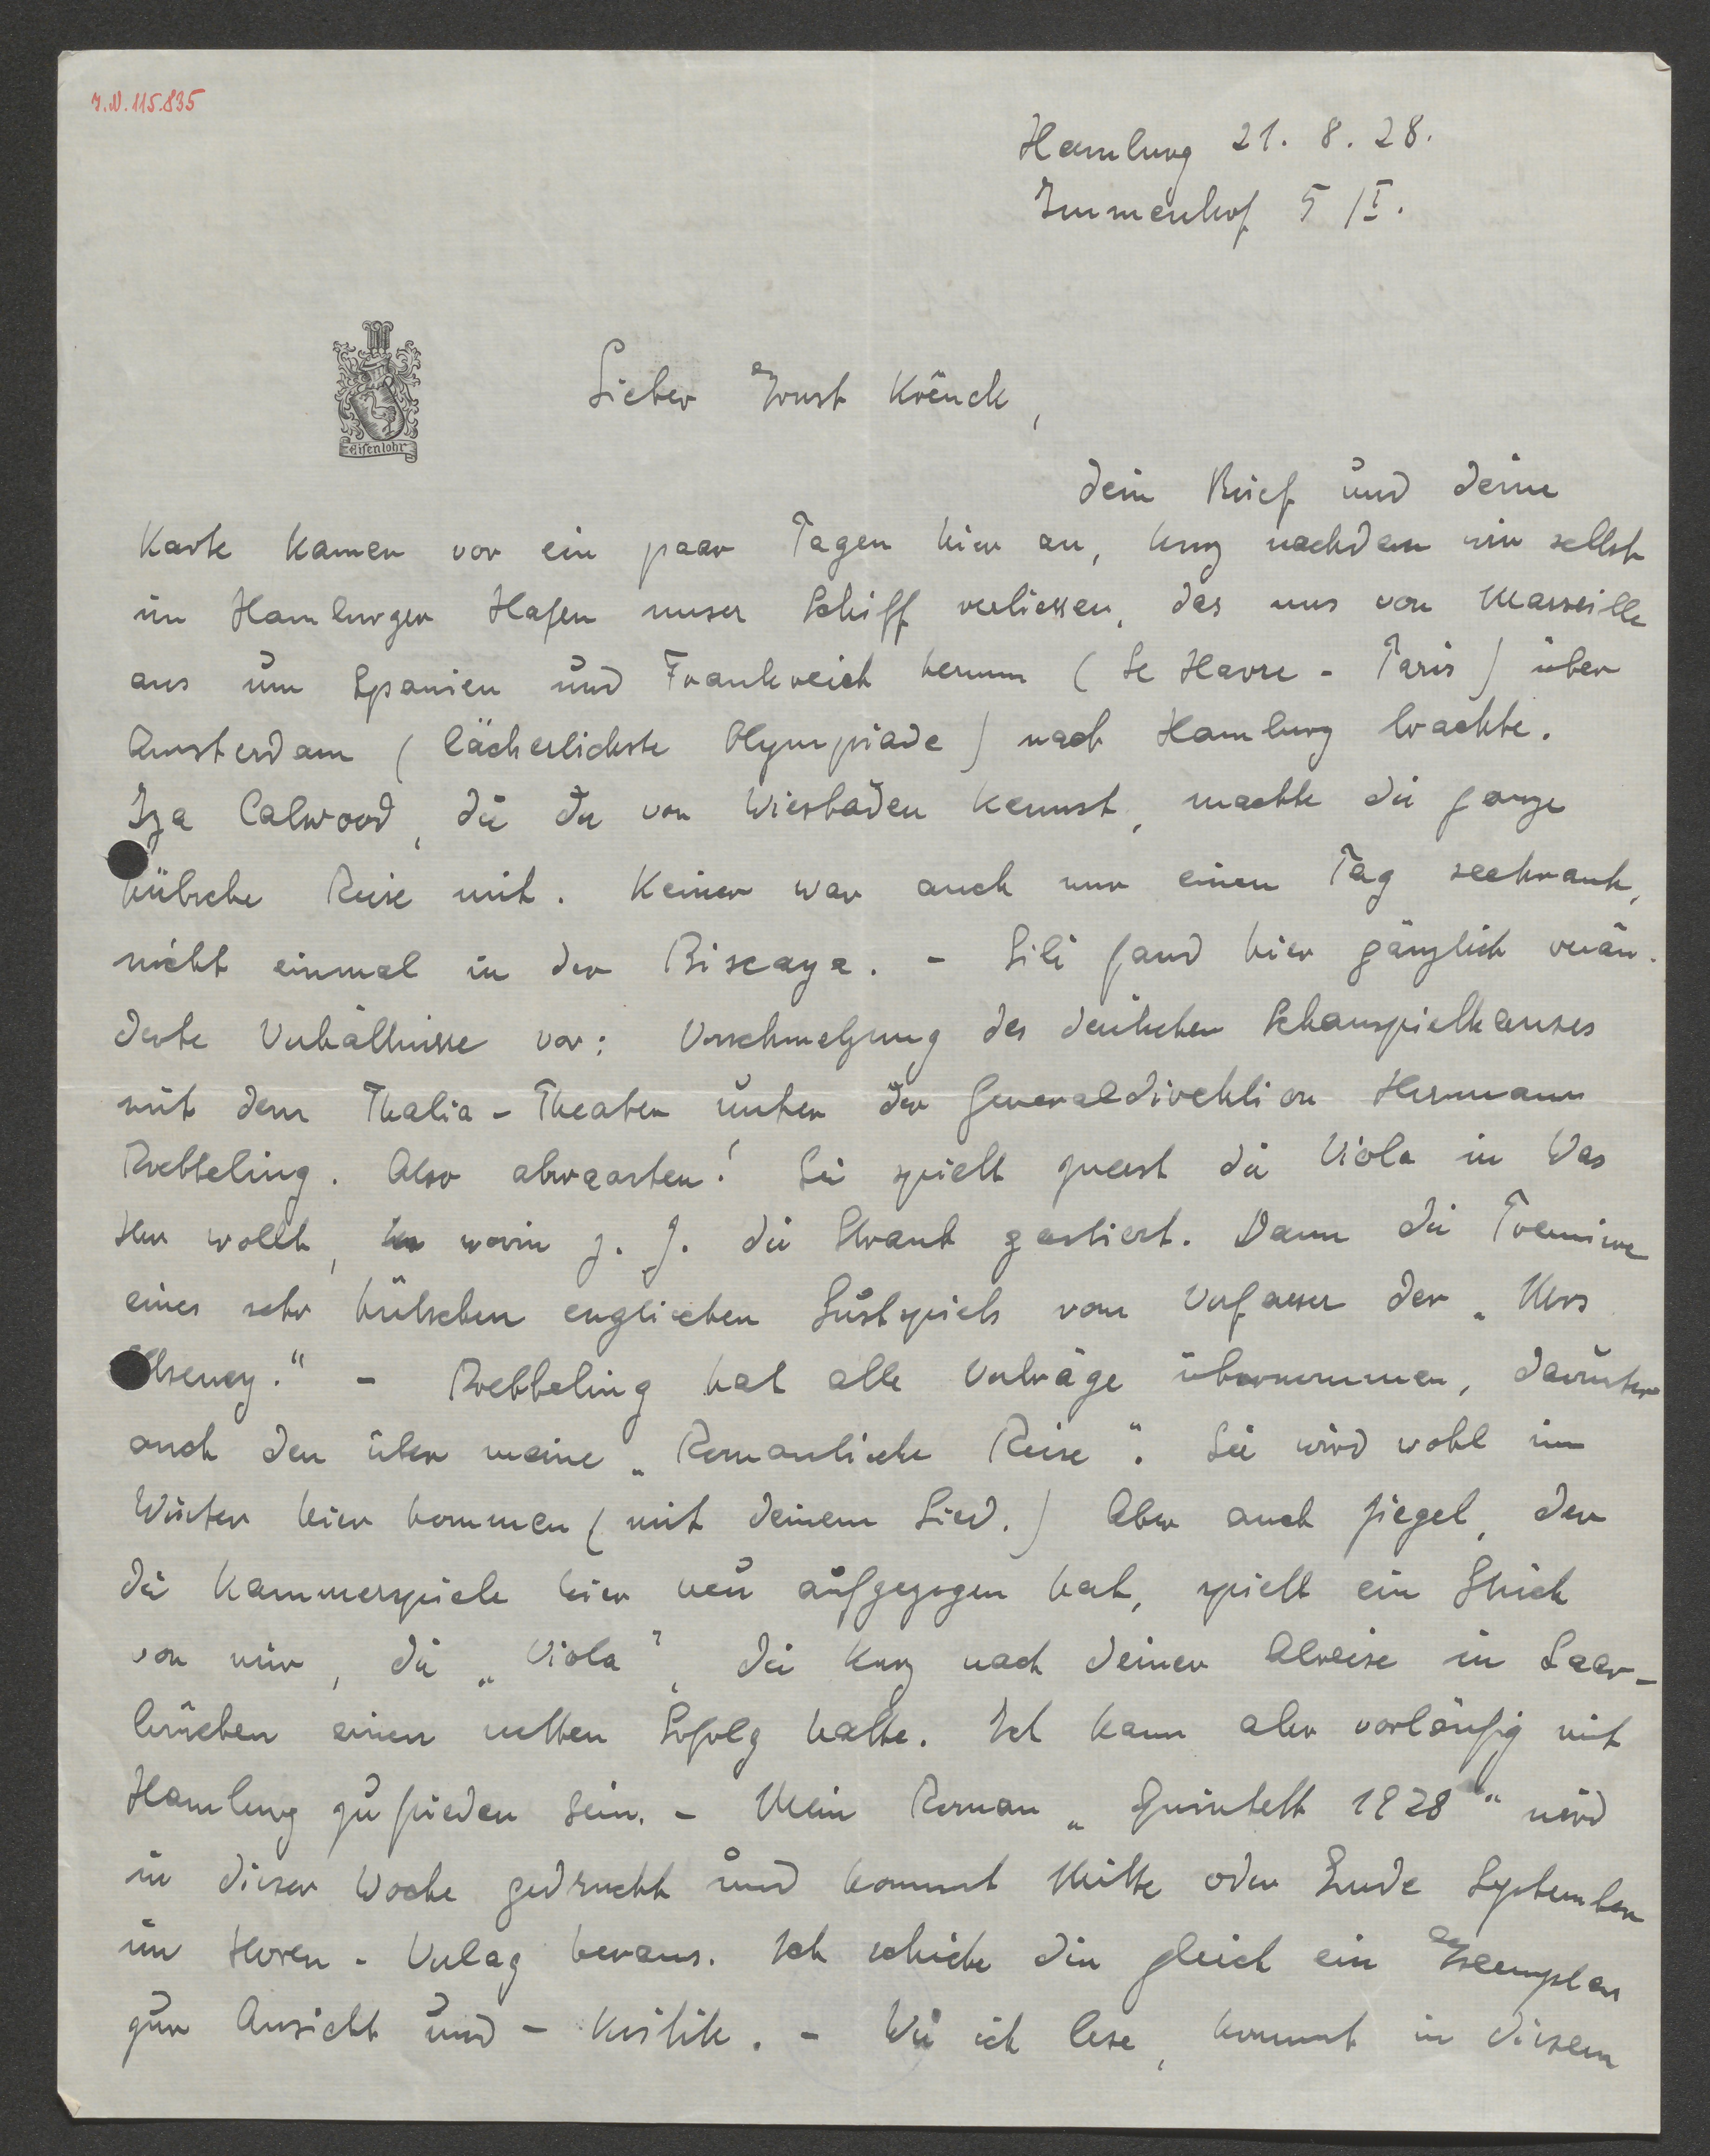 I.N. 115.835
Hamburg 21. 8. 28.
Immenhof 5 /I.
Eisenlohr
Lieber Ernst Krěnek,
dein Brief und deine
Karte kamen vor ein paar Tagen hier an, kurz nachdem wir selbst
im Hamburger Hafen unser Schiff verliessen, das uns von Marseille
aus um Spanien und Frankreich herum (Le Havre - Paris) über
Amsterdam (lächerlichste Olympiade) nach Hamburg brachte.
Iza Calwood, die du von Wiesbaden kennst, machte die ganze
hübsche Reise mit. Keiner war auch nur einen Tag seekrank,
nicht einmal in der Biscaya. - Lili fand hier gänzlich verän-
derte Verhältnisse vor: Verschmelzung des deutschen Schauspielhauses
mit dem Thalia-Theater unter der Generaldirektion Hermann
Roebbeling. Also abwarten! Sie spielt zuerst die Viola in Was
Ihr wollt, worin z. Z. die Straub gastiert. Dann die Premiere
eines sehr hübschen englischen Lustspiels vom Verfasser der „Mrs
Cheney." - Roebbeling hat alle Verträge übernommen, darunter
auch den über meine „Romantische Reise". Sie wird wohl im
Winter hier kommen (mit deinem Lied.) Aber auch Ziegel, der
die Kammerspiele hier neu aufgezogen hat, spielt ein Stück
von mir, die „Viola", die kurz nach deiner Abreise in Saar-
brücken einen netten Erfolg hatte. Ich kann aber vorläufig mit
Hamburg zufrieden sein. - Mein Roman „Quintett 1928" wird
in dieser Woche gedruckt und kommt Mitte oder Ende September
im Horen-Verlag heraus. Ich schicke dir gleich ein Exemplar
zur Ansicht und - Kritik. - Wie ich lese, kommt in diesem